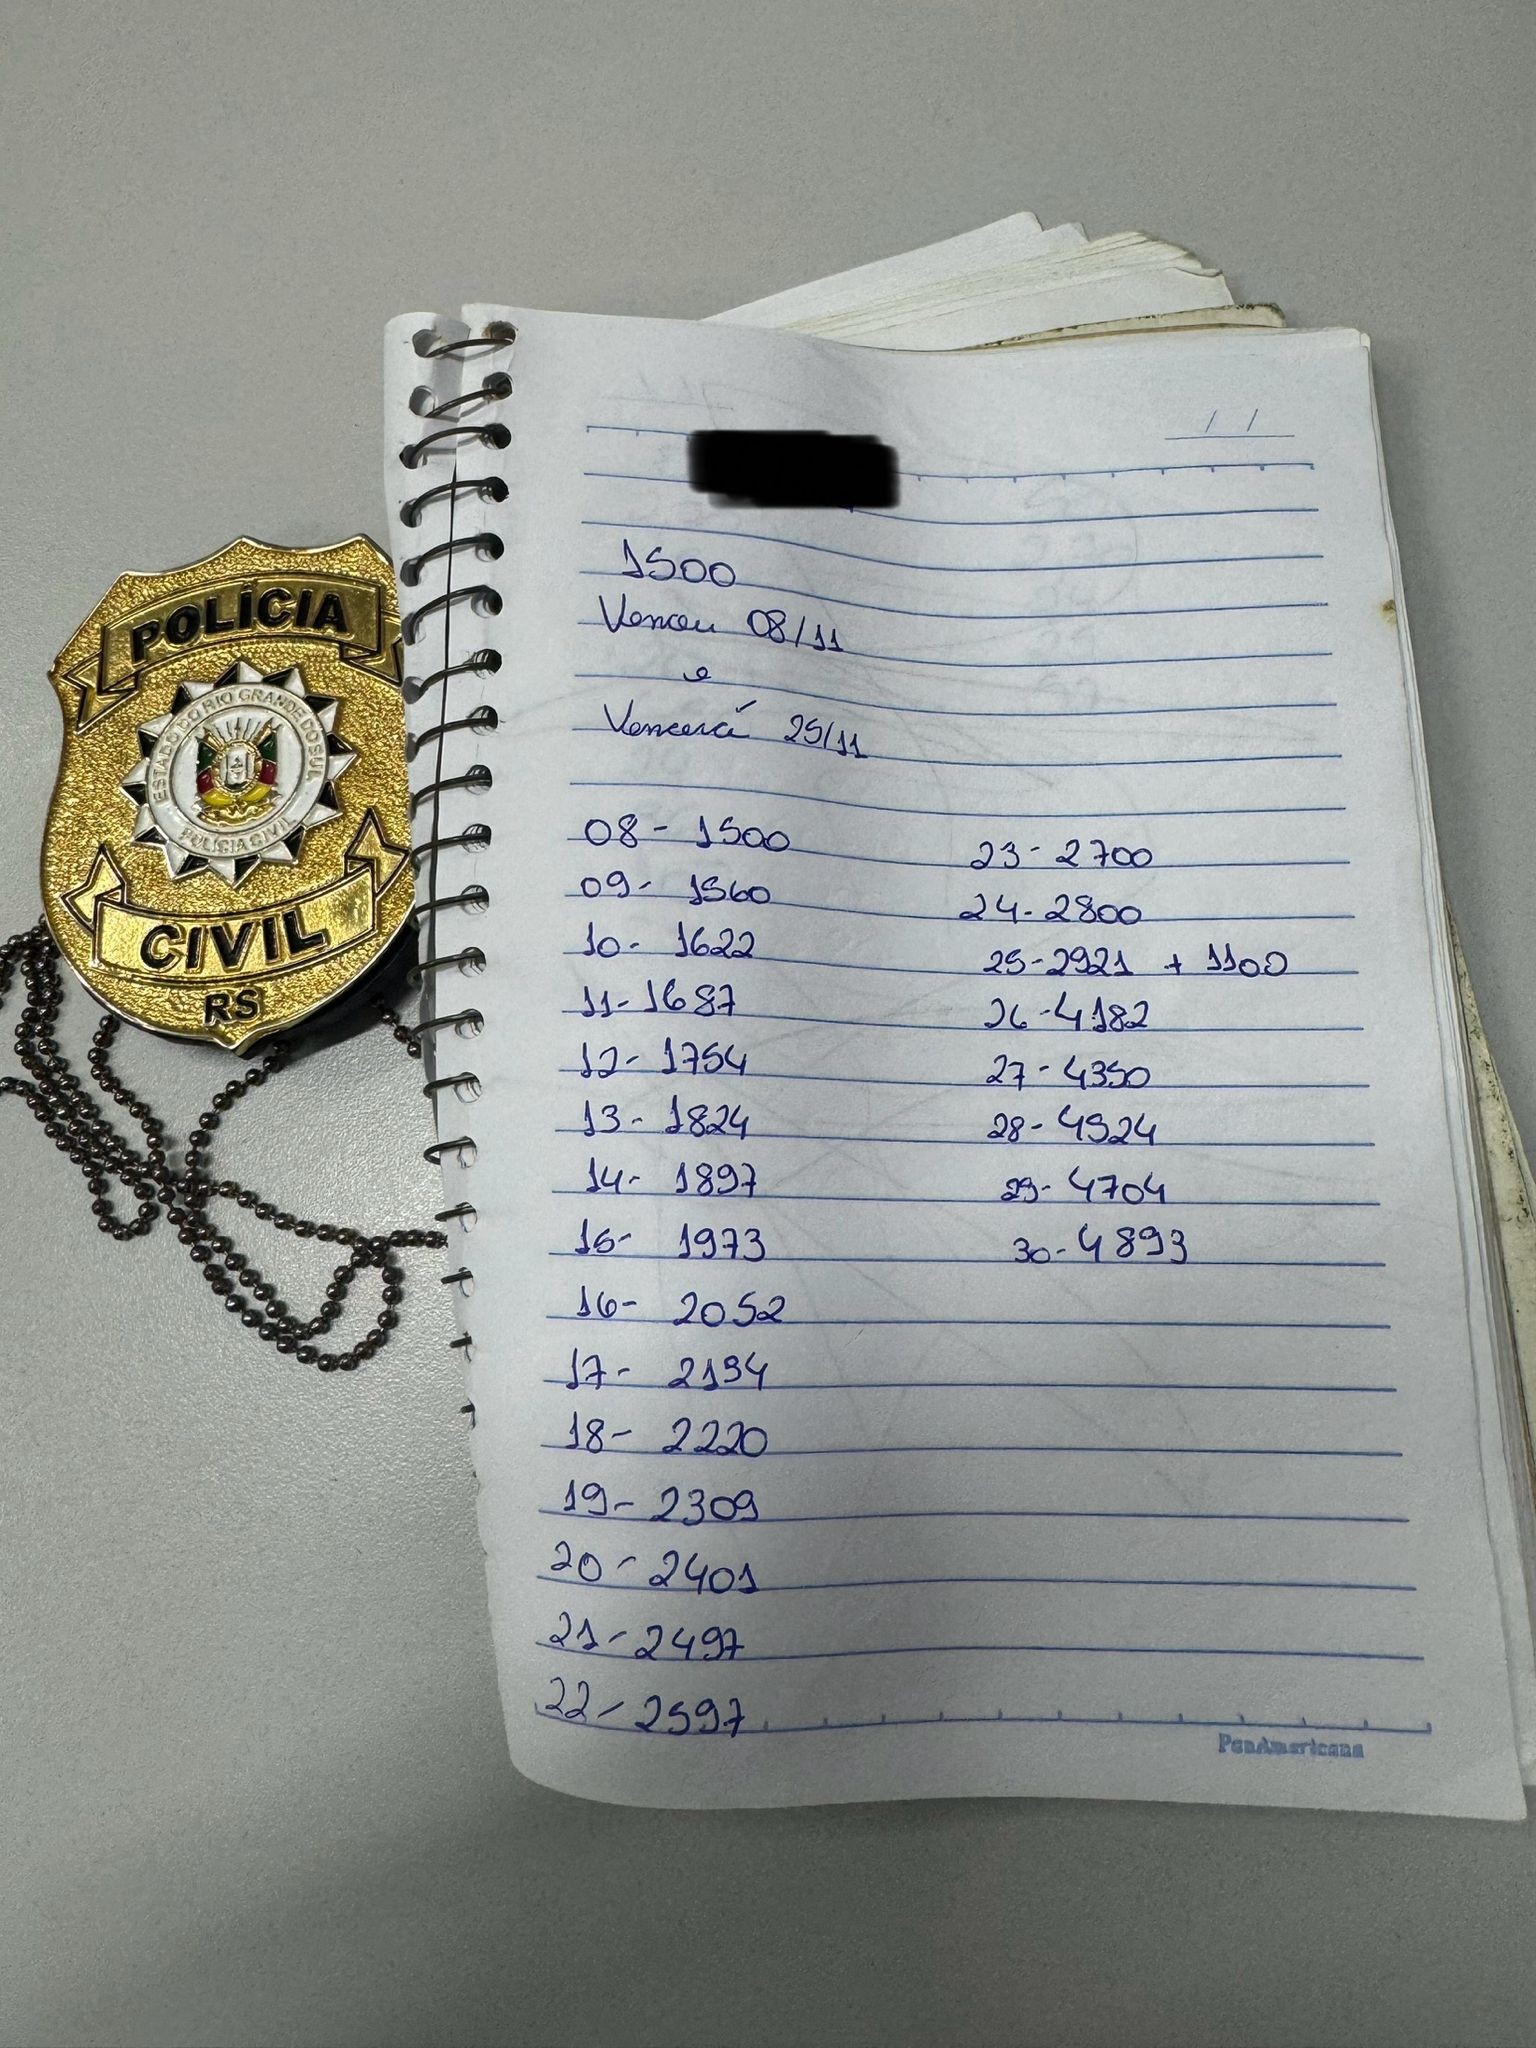 POLÍCIA
ESTADO DO RIO GRANDE DO SUL
POLÍCIA CIVIL
CIVIL
RS
/ /
1500
Venceu 08/11
e
Vencerá 25/11
08 - 1500
09 - 1560
10 - 1622
11 - 1687
12 - 1754
13 - 1824
14 - 1897
15 - 1973
16 - 2052
17 - 2134
18 - 2220
19 - 2309
20 - 2401
21 - 2497
22 - 2597
23 - 2700
24 - 2800
25 - 2921 + 1100
26 - 4182
27 - 4350
28 - 4524
29 - 4704
30 - 4893
PanAmericana